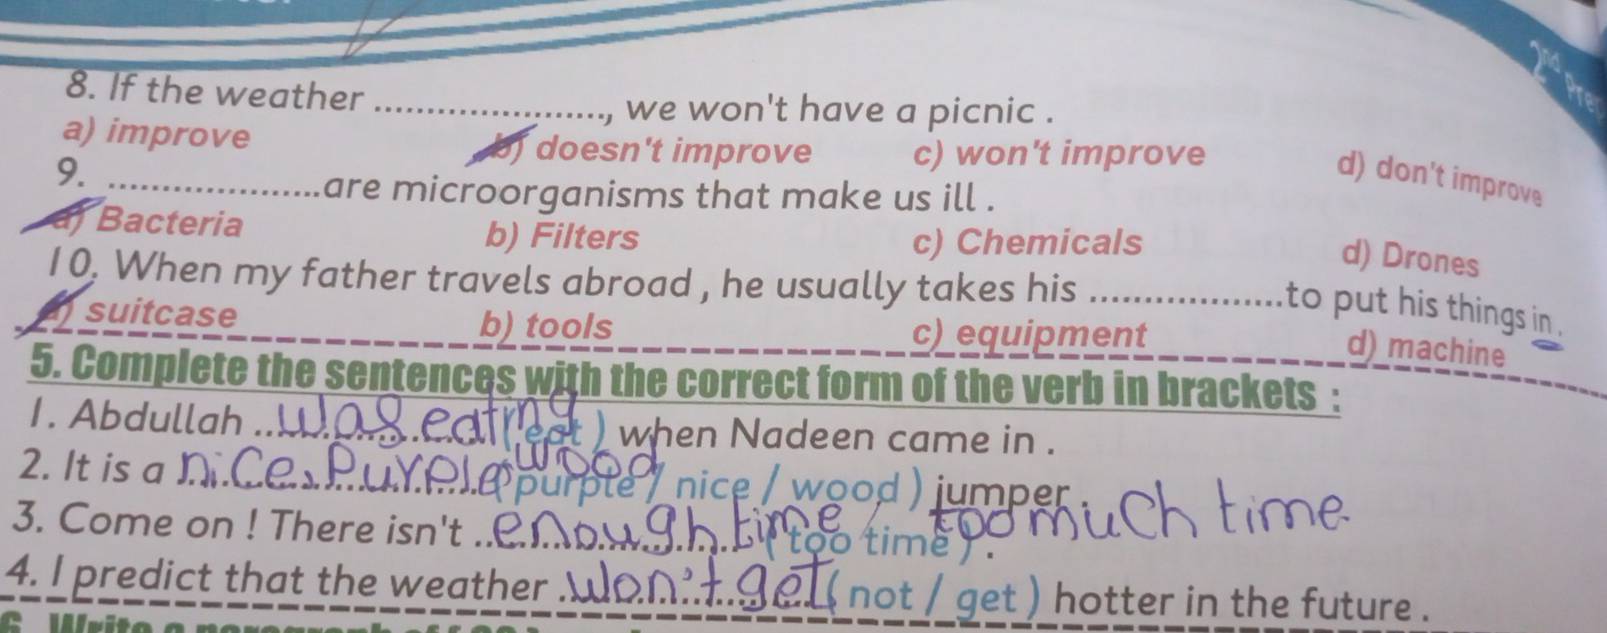 2nd Prep
8. If the weather ......................, we won't have a picnic .
a) improve b) doesn't improve c) won't improve d) don't improve
9. ....................are microorganisms that make us ill .
a) Bacteria b) Filters c) Chemicals d) Drones
10. When my father travels abroad , he usually takes his ..................to put his things in .
a) suitcase b) tools c) equipment d) machine
5. Complete the sentences with the correct form of the verb in brackets :
1. Abdullah ..was eating ( eat ) when Nadeen came in .
2. It is a nice, purple wood ( purple / nice / wood ) jumper .
3. Come on ! There isn't ..enough time / too much time ( too time ) .
4. I predict that the weather .won't get ( not / get ) hotter in the future .